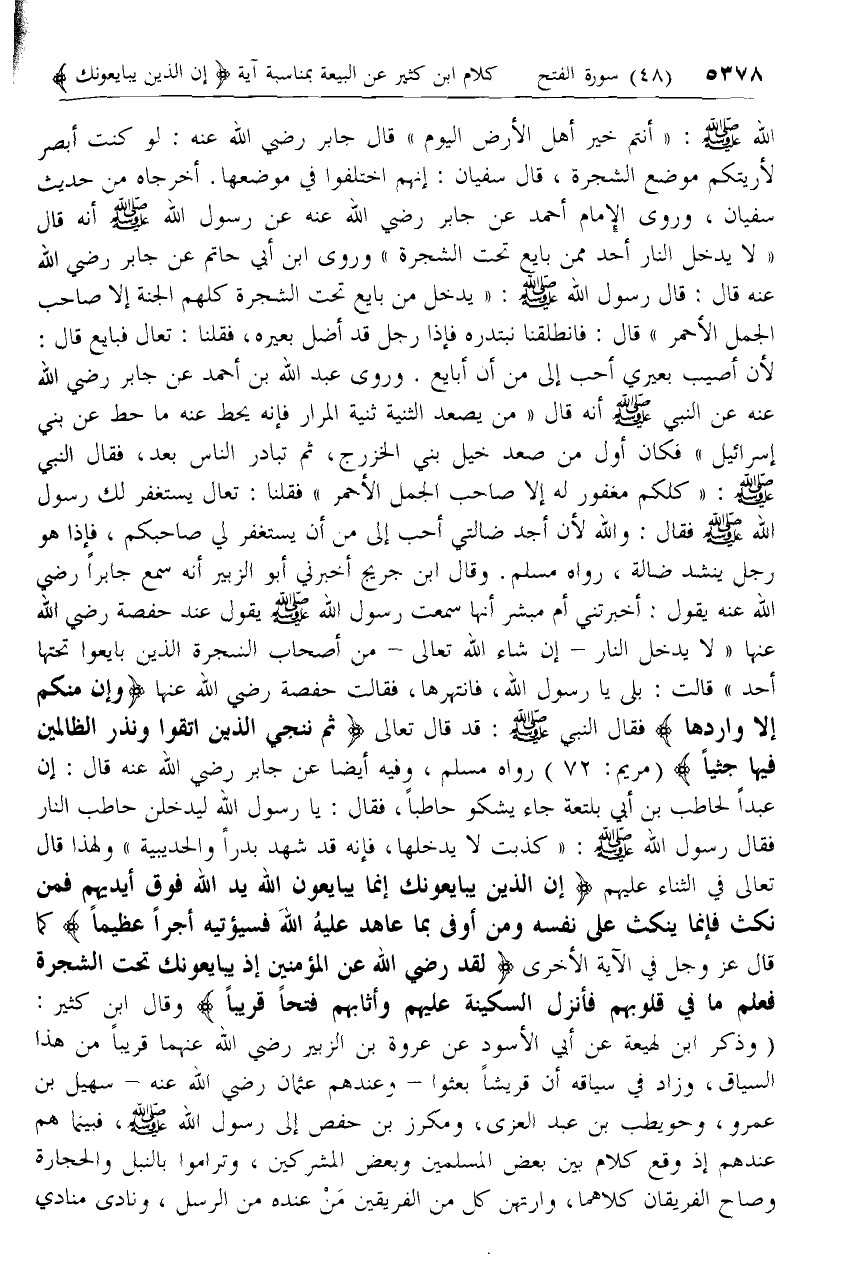 ٥٣٧٨ (٤٨) سورة الفتح كلام ابن كثير عن البيعة بمناسبة آية ﴿ إن الذين يبايعونك ﴾
الله ﷺ : « أنتم خير أهل الأرض اليوم » قال جابر رضي الله عنه : لو كنت أبصر
لأريتكم موضع الشجرة ، قال سفيان : إنهم اختلفوا في موضعها. أخرجاه من حديث
سفيان ، وروى الإمام أحمد عن جابر رضي الله عنه عن رسول الله ﷺ أنه قال
« لا يدخل النار أحد ممن بايع تحت الشجرة » وروى ابن أبي حاتم عن جابر رضي الله
عنه قال : قال رسول الله ﷺ : « يدخل من بايع تحت الشجرة كلهم الجنة إلا صاحب
الجمل الأحمر » قال : فانطلقنا نبتدره فإذا رجل قد أضل بعيره، فقلنا : تعال فبايع قال :
لأن أصيب بعيري أحب إلى من أن أبايع . وروى عبد الله بن أحمد عن جابر رضي الله
عنه عن النبي ﷺ أنه قال « من يصعد الثنية ثنية المرار فإنه يحط عنه ما حط عن بني
إسرائيل » فكان أول من صعد خيل بني الخزرج، ثم تبادر الناس بعد، فقال النبي
ﷺ : « كلكم مغفور له إلا صاحب الجمل الأحمر » فقلنا : تعال يستغفر لك رسول
الله ﷺ فقال : والله لأن أجد ضالتي أحب إلى من أن يستغفر لي صاحبكم ، فإذا هو
رجل ينشد ضالة ، رواه مسلم. وقال ابن جريج أخبرني أبو الزبير أنه سمع جابراً رضي
الله عنه يقول : أخبرتني أم مبشر أنها سمعت رسول الله ﷺ يقول عند حفصة رضي الله
عنها « لا يدخل النار – إن شاء الله تعالى – من أصحاب الشجرة الذين بايعوا تحتها
أحد » قالت : بلى يا رسول الله، فانتهرها، فقالت حفصة رضي الله عنها ﴿وإن منكم
إلا واردها ﴾ فقال النبي ﷺ : قد قال تعالى ﴿ ثم ننجي الذين اتقوا ونذر الظالمين
فيها جثياً ﴾ (مريم: ٧٢ ) رواه مسلم ، وفيه أيضا عن جابر رضي الله عنه قال : إن
عبداً لحاطب بن أبي بلتعة جاء يشكو حاطباً، فقال : يا رسول الله ليدخلن حاطب النار
فقال رسول الله ﷺ : « كذبت لا يدخلها، فإنه قد شهد بدراً والحديبية » ولهذا قال
تعالى في الثناء عليهم ﴿ إن الذين يبايعونك إنما يبايعون الله يد الله فوق أيديهم فمن
نكث فإنما ينكث على نفسه ومن أوفى بما عاهد عليهُ اللهَ فسيؤتيه أجراً عظيماً ﴾ كما
قال عز وجل في الآية الأخرى ﴿ لقد رضي الله عن المؤمنين إذ يبايعونك تحت الشجرة
فعلم ما في قلوبهم فأنزل السكينة عليهم وأثابهم فتحاً قريباً ﴾ وقال ابن كثير :
( وذكر ابن لهيعة عن أبي الأسود عن عروة بن الزبير رضي الله عنهما قريباً من هذا
السياق، وزاد في سياقه أن قريشاً بعثوا – وعندهم عثمان رضي الله عنه – سهيل بن
عمرو، وحويطب بن عبد العزى، ومكرز بن حفص إلى رسول الله ﷺ، فبينما هم
عندهم إذ وقع كلام بين بعض المسلمين وبعض المشركين ، وتراموا بالنبل والحجارة
وصاح الفريقان كلاهما، وارتهن كل من الفريقين مَنْ عنده من الرسل ، ونادى منادي